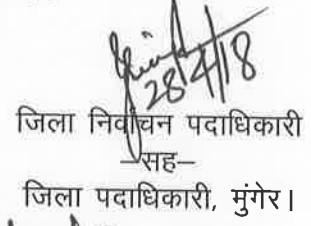 28/4/18
जिला निर्वाचन पदाधिकारी
–सह–
जिला पदाधिकारी, मुंगेर।